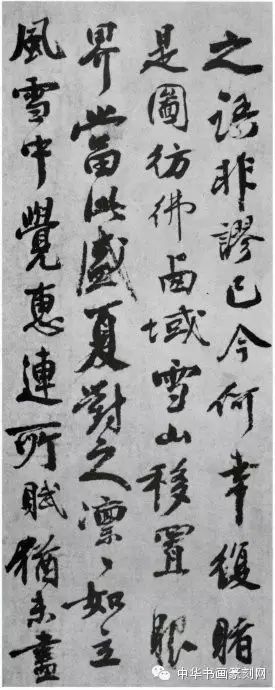 之語非謬已今何幸復睹
是圖彷彿西域雪山移置眼
界當此盛夏對之凜〻如立
風雪中覺惠連所賦猶未盡
中华书画篆刻网